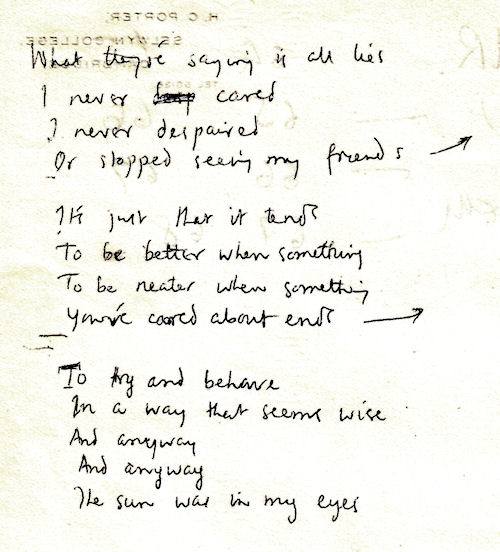 H. C. PORTER.
SELWYN COLLEGE,
What they're saying is all lies
I never cared
I never despaired
Or stopped seeing my friends →
It's just that it tends
To be better when something
To be neater when something
You've cared about ends →
To try and behave
In a way that seems wise
And anyway
And anyway
The sun was in my eyes